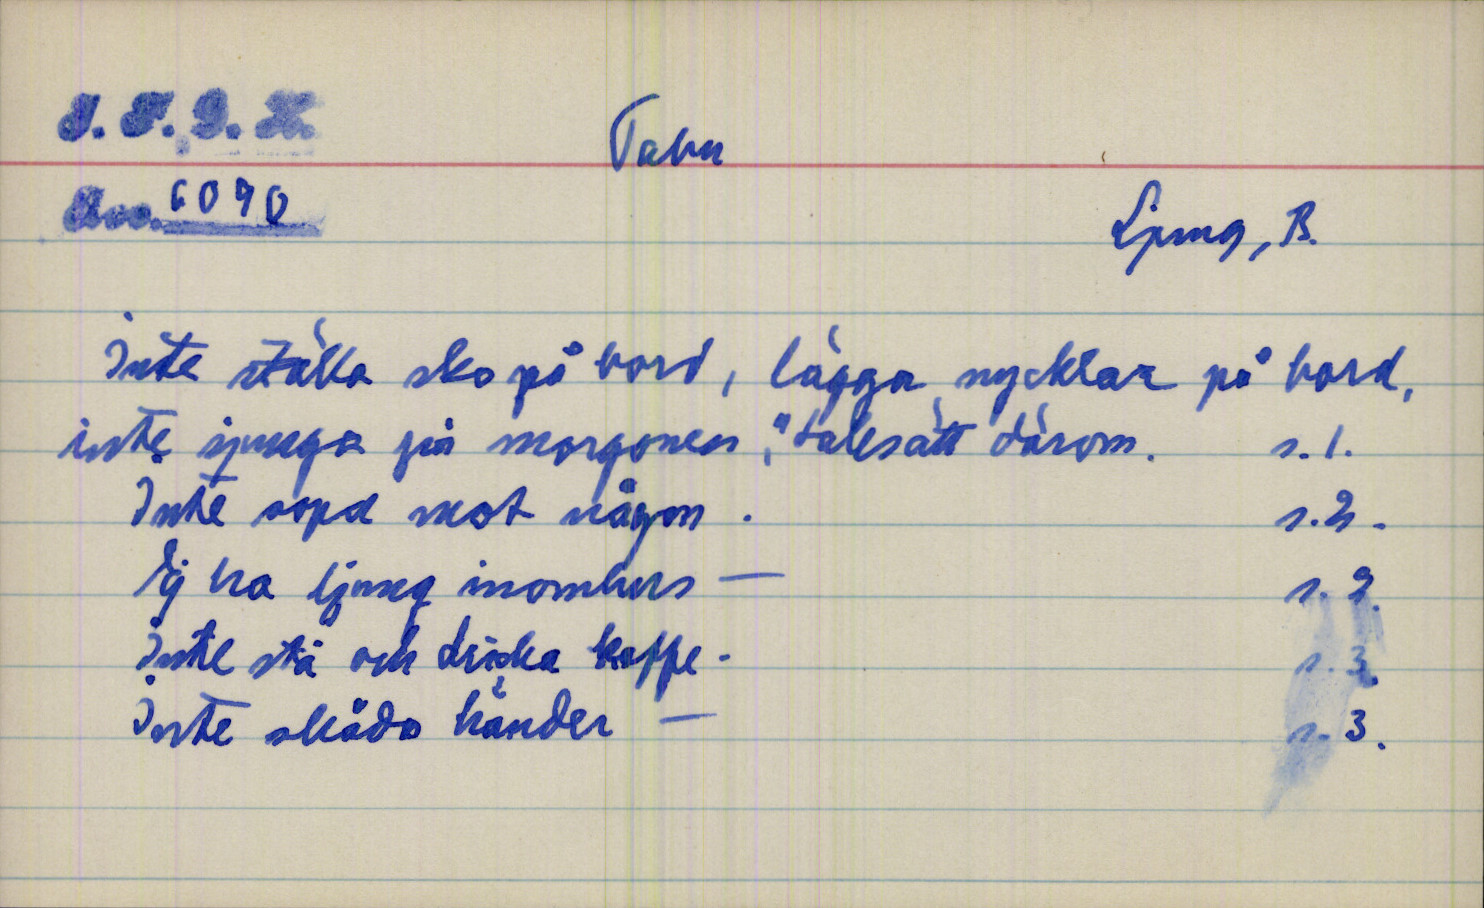 I. F. G. H.
Tabu
Acc. 6090
Ljung, B.
Inte ställa sko på bord, lägga nycklar på bord,
inte sjunga på morgonen, talesätt därom. s. 1.
Inte sopa mot någon. s. 2.
Ej ha ljung inomhus — s. 2.
Inte stå och dricka kaffe. s. 3.
Inte skåda händer — s. 3.